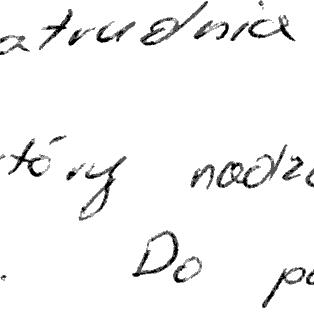 atrudnia
tóry nadz
. Do po